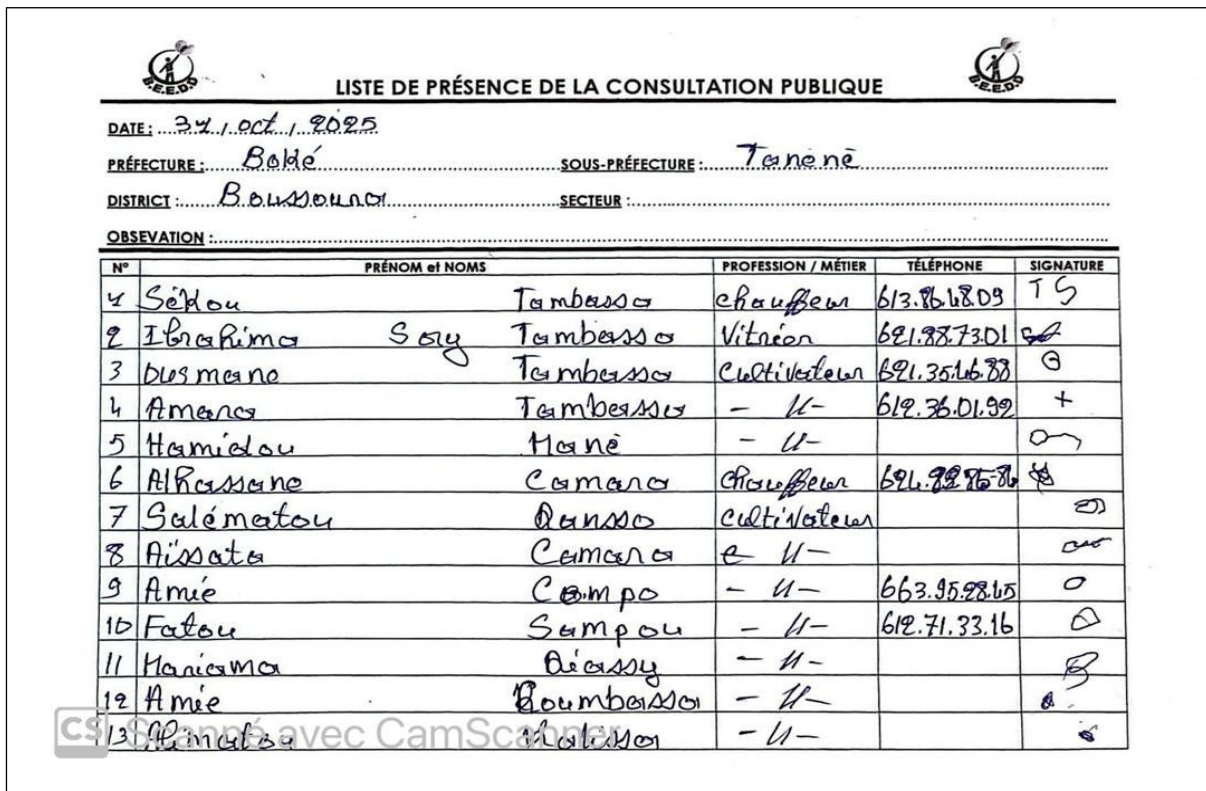 B.E.E.D.D B.E.E.D.D
LISTE DE PRÉSENCE DE LA CONSULTATION PUBLIQUE
DATE : 31 / oct / 2025
PRÉFECTURE : Boké SOUS-PRÉFECTURE : Tanènè
DISTRICT : Boussoura SECTEUR :
OBSEVATION :
N° PRÉNOM et NOMS PROFESSION / MÉTIER TÉLÉPHONE SIGNATURE
1 Sékou Tambassa chauffeur 613.86.48.09 TS
2 Ibrahima Sory Tambassa Vitrier 621.88.73.01
3 Ousmane Tambassa Cultivateur 621.35.46.88
4 Amara Tambassa - 11 - 612.36.01.92 +
5 Hamidou Manè - 11 -
6 Alhassane Camara chauffeur
7 Salématou Dansso Cultivateur
8 Aïssata Camara - 11 -
9 Amie Compo - 11 - 663.95.28.45
10 Fatou Sampou - 11 - 612.71.33.16
11 Mariama Diassy - 11 -
12 Amie Koumbassa - 11 -
13 - 11 -
CS Scanné avec CamScanner